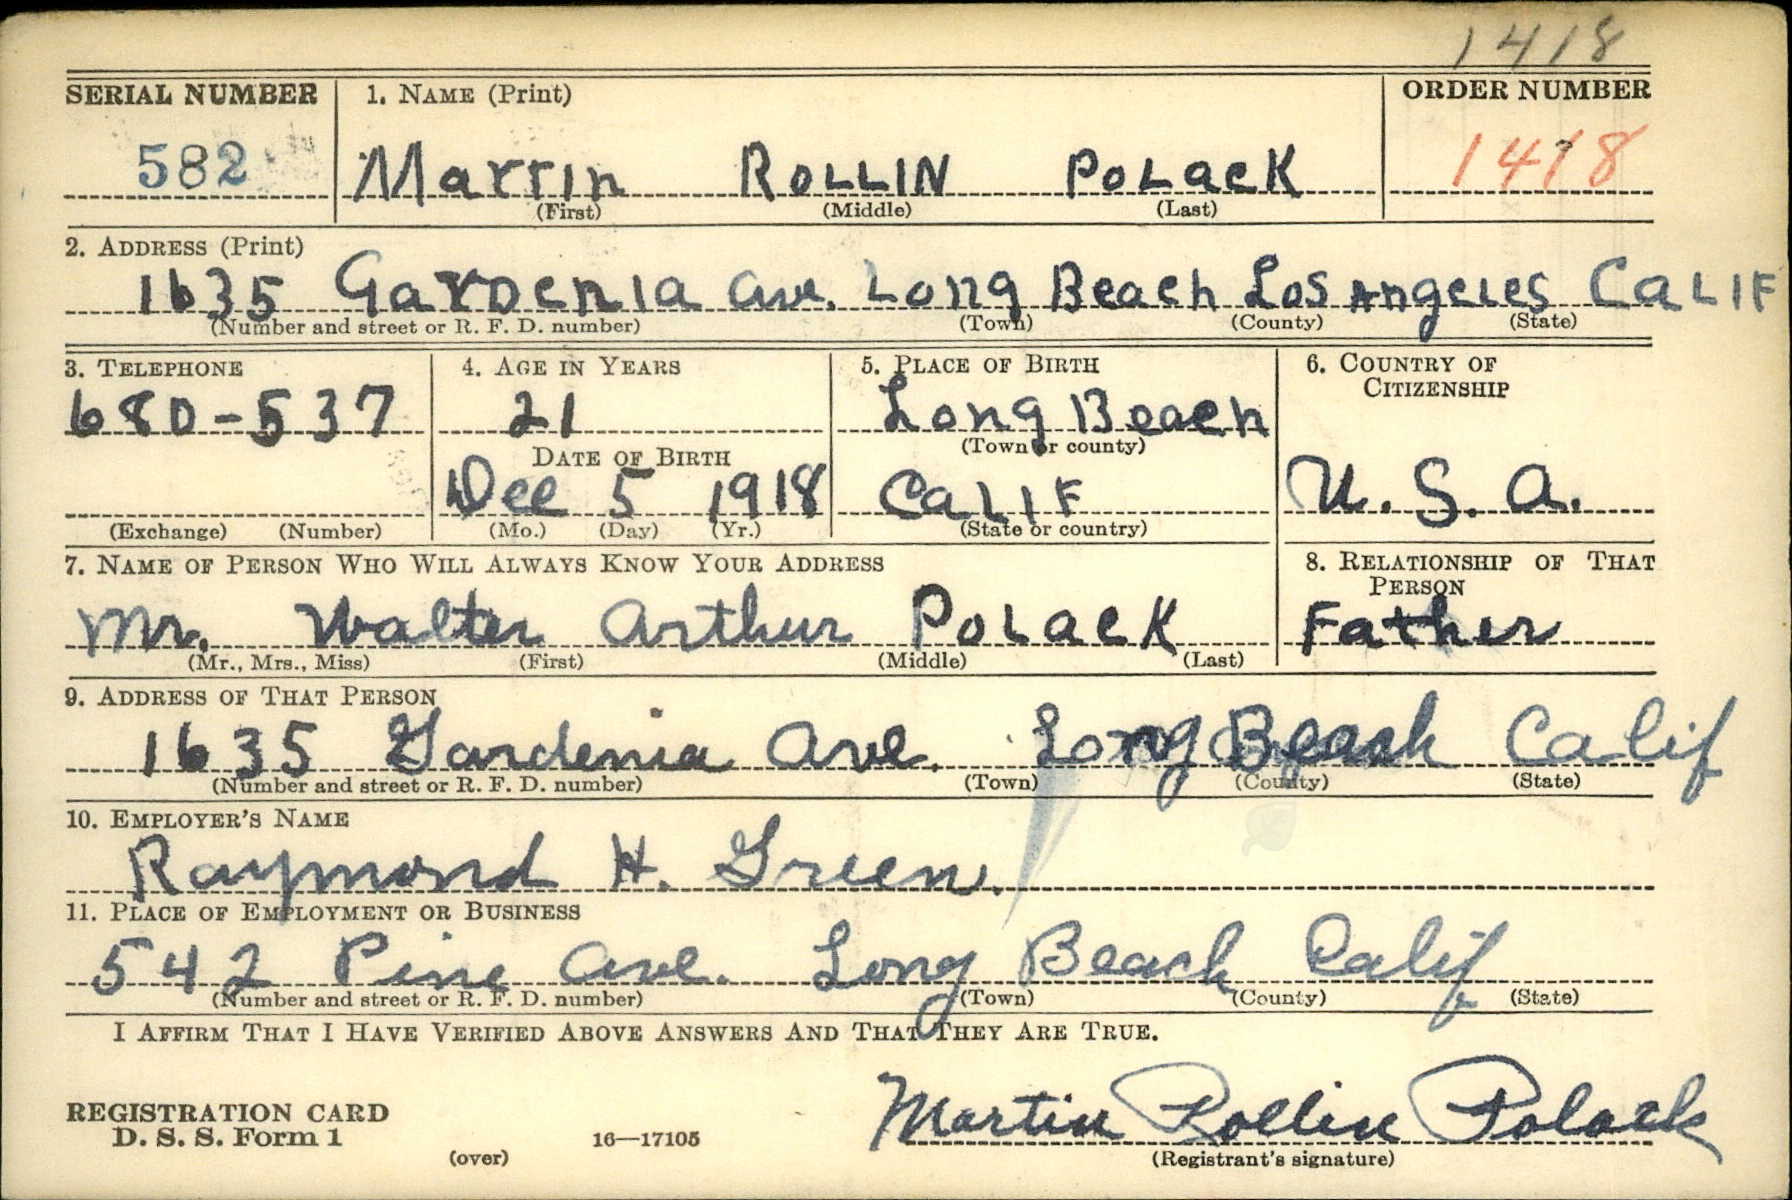 1418
SERIAL NUMBER 1. NAME (Print) ORDER NUMBER
582 Martin ROLLIN POLACK 1418
(First) (Middle) (Last)
2. ADDRESS (Print)
1635 GARDENIA Ave. Long Beach Los Angeles CALIF
(Number and street or R. F. D. number) (Town) (County) (State)
3. TELEPHONE 4. AGE IN YEARS 5. PLACE OF BIRTH 6. COUNTRY OF CITIZENSHIP
680-537 21 Long Beach
DATE OF BIRTH (Town or county)
Dec 5 1918 CALIF U. S. A.
(Exchange) (Number) (Mo.) (Day) (Yr.) (State or country)
7. NAME OF PERSON WHO WILL ALWAYS KNOW YOUR ADDRESS 8. RELATIONSHIP OF THAT PERSON
Mr. Walter Arthur POLACK Father
(Mr., Mrs., Miss) (First) (Middle) (Last)
9. ADDRESS OF THAT PERSON
1635 Gardenia Ave. Long Beach Calif
(Number and street or R. F. D. number) (Town) (County) (State)
10. EMPLOYER'S NAME
Raymond H. Green.
11. PLACE OF EMPLOYMENT OR BUSINESS
542 Pine Ave. Long Beach Calif
(Number and street or R. F. D. number) (Town) (County) (State)
I AFFIRM THAT I HAVE VERIFIED ABOVE ANSWERS AND THAT THEY ARE TRUE.
REGISTRATION CARD
D. S. S. Form 1 Martin Rollin Polack
(over) 16—17105 (Registrant's signature)